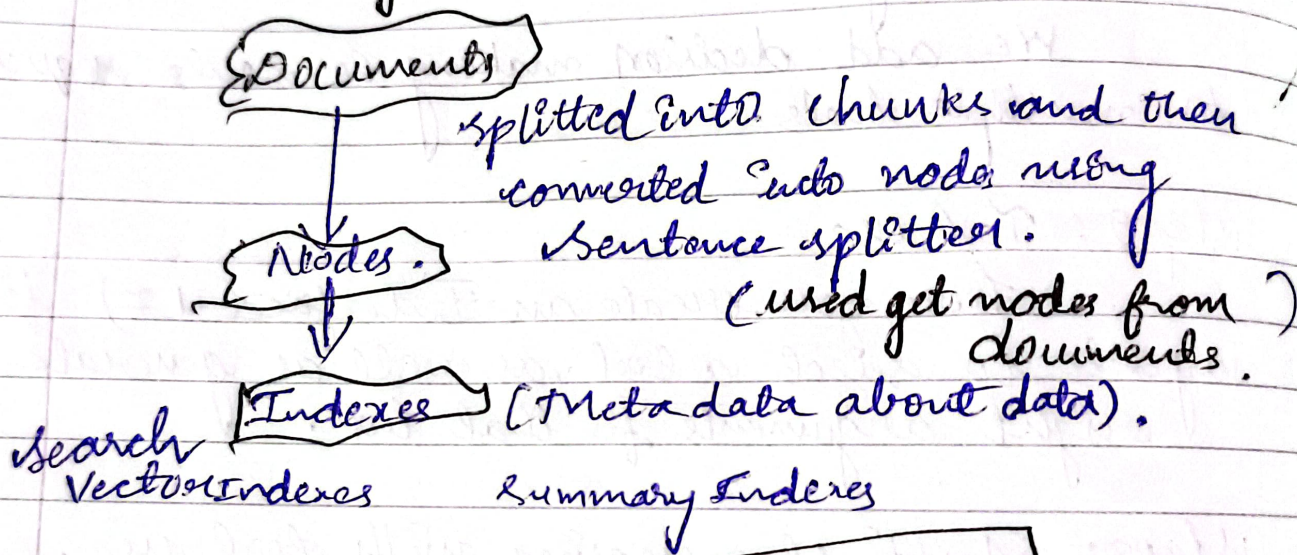 Documents
splitted into chunks and then
converted into nodes using
sentence splitter.
Nodes.
(used get nodes from)
documents.
Indexes (Meta data about data).
search
Vector Indexes Summary Indexes